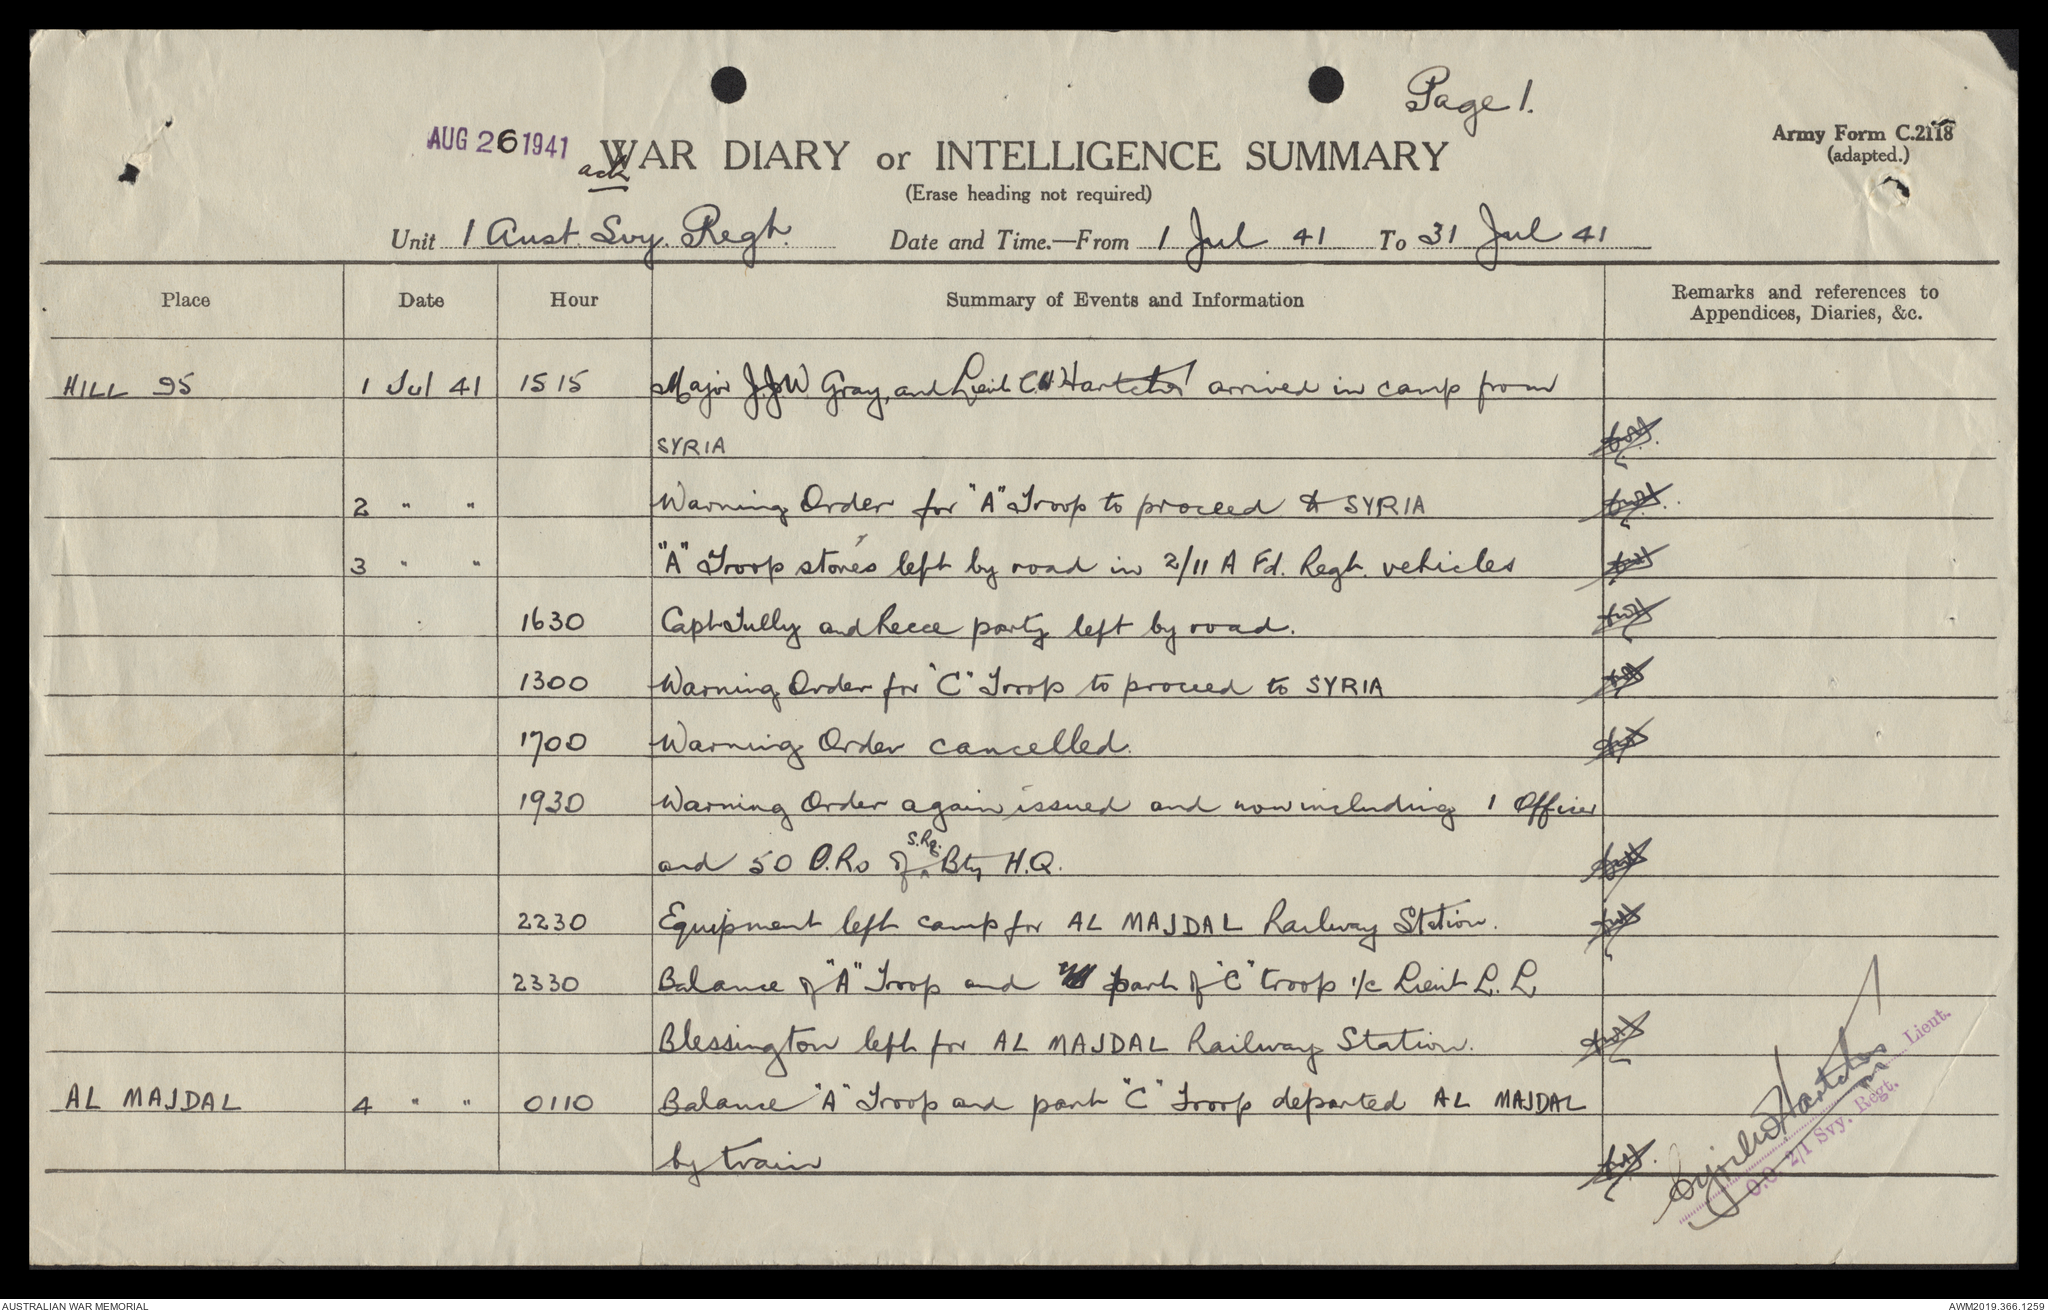 Page 1.
AUG 26 1941
ack
WAR DIARY or INTELLIGENCE SUMMARY
Army Form C.2118
(adapted.)
(Erase heading not required)
Unit 1 Aust. Svy. Regt. Date and Time.—From 1 Jul 41 To 31 Jul 41
Place Date Hour Summary of Events and Information Remarks and references to
Appendices, Diaries, &c.
HILL 95 1 Jul 41 1515 Major J.J.W Gray, and Lieut C.W Hartcher arrived in camp from
SYRIA
2 " " Warning Order for "A" Troop to proceed to SYRIA
3 " " "A" Troop stores left by road in 2/11 A Fd. Regt. vehicles
1630 Capt Tully and Recce party left by road.
1300 Warning Order for "C" Troop to proceed to SYRIA
1700 Warning Order cancelled.
1930 Warning Order again issued and now including 1 Officer
and 50 O.Rs of S.Rg. Bty H.Q.
2230 Equipment left camp for AL MAJDAL Railway Station.
2330 Balance of "A" Troop and part of "C" troop i/c Lieut L. L
Blessington left for AL MAJDAL Railway Station.
AL MAJDAL 4 " " 0110 Balance "A" Troop and part "C" Troop departed AL MAJDAL
by train
Lieut.
O.C. 2/1 Svy. Regt.
AUSTRALIAN WAR MEMORIAL AWM2019.366.1259